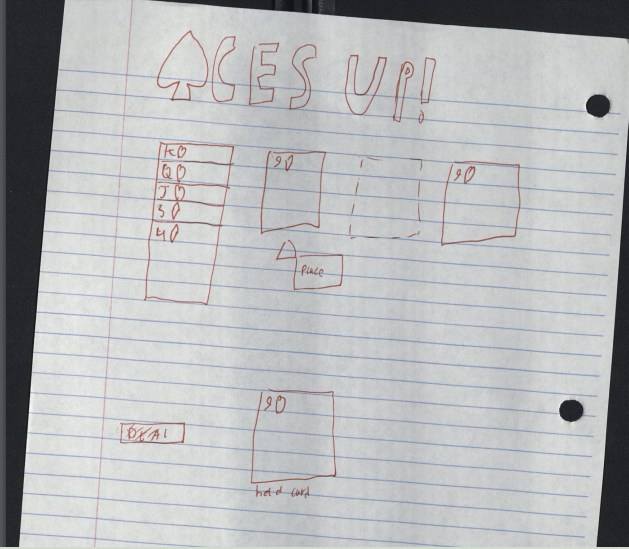 ♤CES UP!
K♢
Q♢
J♢
3♢
4♢
9♢
9♢
place
9♢
DEAL
card